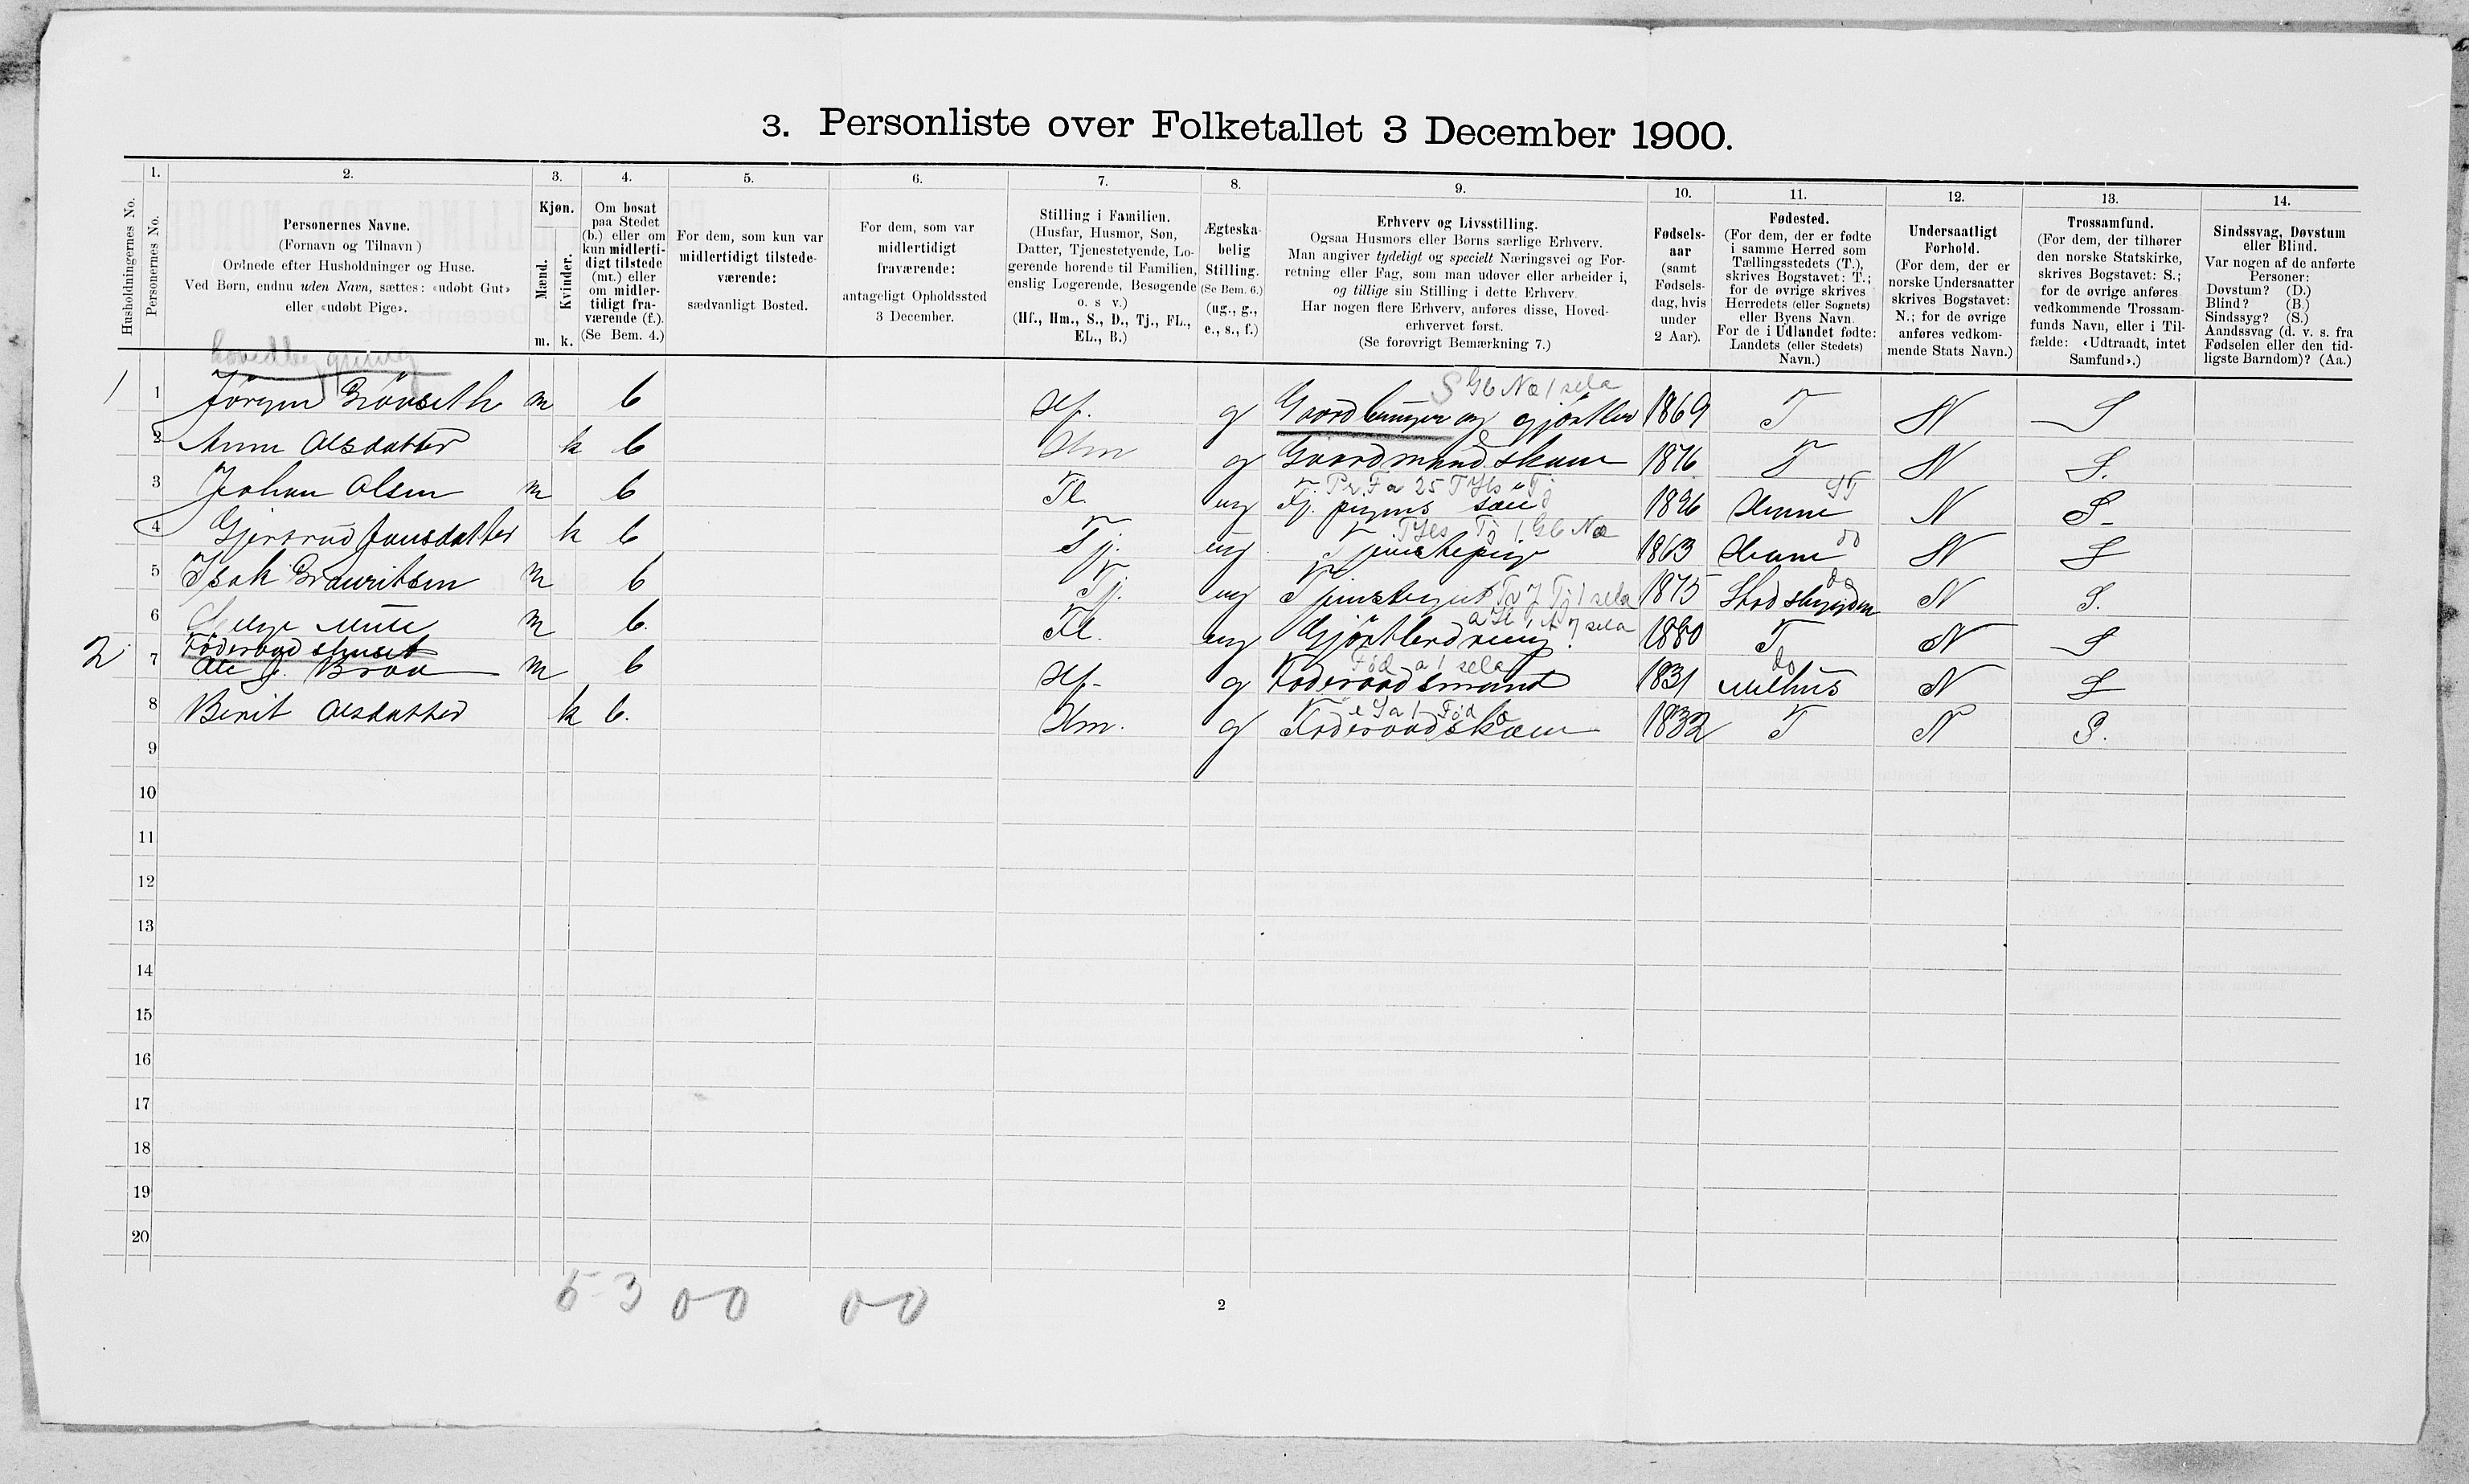 3. Personliste over Folketallet 3 December 1900.
Husholdningernes No.
1. Personernes No.
2. Personernes Navne.
(Fornavn og Tilnavn)
Ordnede efter Husholdninger og Huse.
Ved Børn, endnu uden Navn, sættes: «udøbt Gut»
eller «udøbt Pige».
3. Kjøn.
Mænd. m.
Kvinder. k.
4. Om bosat
paa Stedet
(b.) eller om
kun midlerti-
digt tilstede
(mt.) eller
om midler-
tidigt fra-
værende (f.).
(Se Bem. 4.)
5. For dem, som kun var
midlertidigt tilstede-
værende:
sædvanligt Bosted.
6. For dem, som var
midlertidigt
fraværende:
antageligt Opholdssted
3 December.
7. Stilling i Familien.
(Husfar, Husmor, Søn,
Datter, Tjenestetyende, Lo-
gerende hørende til Familien,
enslig Logerende, Besøgende
o. s v.)
(Hf., Hm., S., D., Tj., FL.,
EL., B.)
8. Ægteska-
belig
Stilling.
(Se Bem. 6.)
(ug., g.,
e., s., f.)
9. Erhverv og Livsstilling.
Ogsaa Husmors eller Børns særlige Erhverv.
Man angiver tydeligt og specielt Næringsvei og For-
retning eller Fag, som man udøver eller arbeider i,
og tillige sin Stilling i dette Erhverv.
Har nogen flere Erhverv, anføres disse, Hoved-
erhvervet først.
(Se forøvrigt Bemærkning 7.)
10. Fødsels-
aar
(samt
Fødsels-
dag, hvis
under
2 Aar).
11. Fødested.
(For dem, der er fødte
i samme Herred som
Tællingsstedets (T.),
skrives Bogstavet: T.;
for de øvrige skrives
Herredets (eller Sognets)
eller Byens Navn.
For de i Udlandet fødte:
Landets (eller Stedets)
Navn.)
12. Undersaatligt
Forhold.
(For dem, der er
norske Undersaatter
skrives Bogstavet:
N.; for de øvrige
anføres vedkom-
mende Stats Navn.)
13. Trossamfund.
(For dem, der tilhører
den norske Statskirke,
skrives Bogstavet: S.;
for de øvrige anføres
vedkommende Trossam-
funds Navn, eller i Til-
fælde: «Udtraadt, intet
Samfund».)
14. Sindssvag, Døvstum
eller Blind.
Var nogen af de anførte
Personer:
Døvstum? (D.)
Blind? (B.)
Sindssyg? (S.)
Aandssvag (d. v. s. fra
Fødselen eller den tid-
ligste Barndom)? (Aa.)
Hovedbygning
S Gb Næ 1 sela
1 1 Jörgen m b Hf. g Gaardbruger og gjörtler 1869 T N S
2 Anne Olsdatter k b Hm g Gaardmandskone 1876 T N S.
Pr. Fa 25 T Hs Tj
3 Johan Olsen m b Fl. ug Tj. pigens sön 1896 N S.
T Hs Tj 1 Gb Næ
4 Gjertrud Jonsdatter k b Tj. ug Tjenstepige 1863 do N S
Tj 1 sela do
5 Isak m b Tj. ug Tjenstegut 1875 Stadsbygden N S.
6 m b. Fl. ug Gjörtlerdreng. 1880 T N S
Föderaadshuset
Fød a 1 sela do
2 7 Ole J. Braa m b Hf. g Föderaadsmand 1831 Melhus N S
8 Berit Olsdatter k b. Hm. g Föderaadskone 1832 T N S.
9
10
11
12
13
14
15
16
17
18
19
20
5 3 0 0 0 0
2